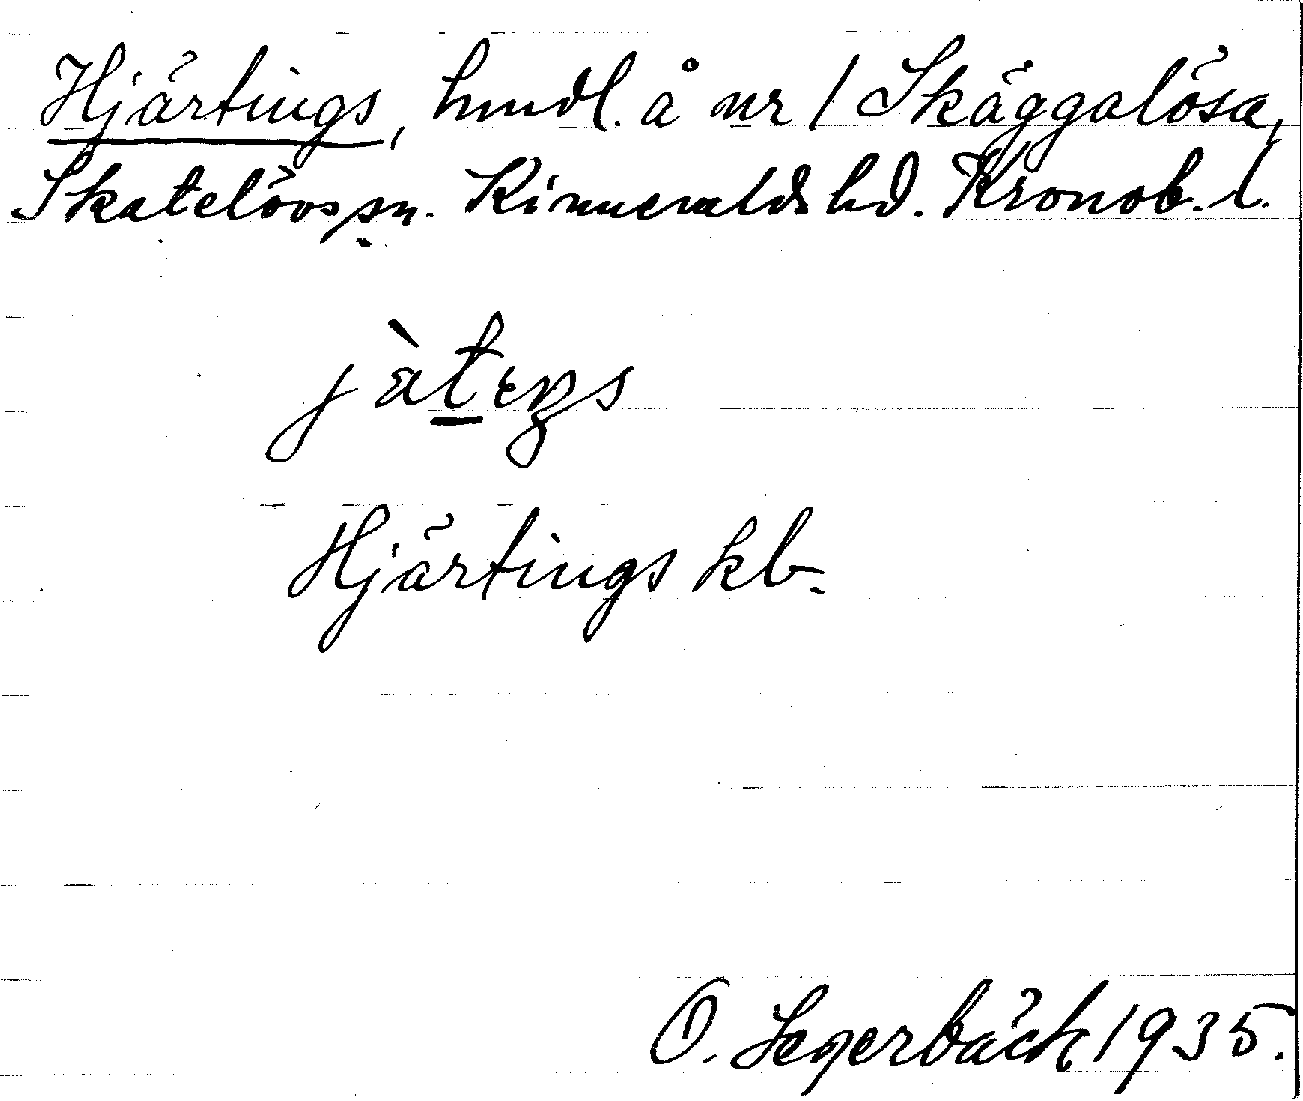 Hjärtings, hmdl. å nr 1 Skäggalösa,
Skatelövs sn. Kinnevalds hd. Kronob. l.
jàtɛŋs
Hjärtings kb.
O. Segerbäck 1935.